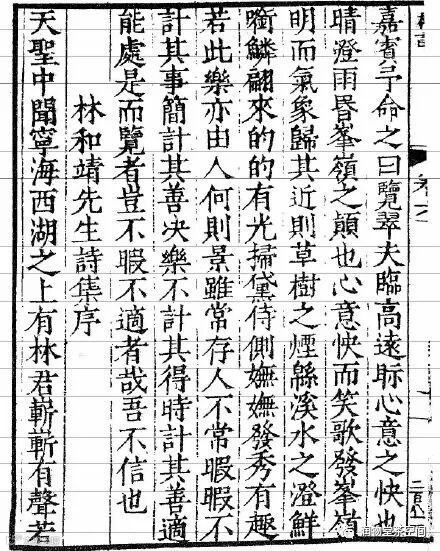 嘉賓予命之曰覽翠夫臨高遠眎心意之快也
晴澄雨昏峯嶺之顛也心意快而笑歌發峯嶺
明而氣象歸其近則草樹之煙緜溪水之澄鮮
銜鱗翩來的的有光掃黛侍側嫵嫵發秀有趣
若此樂亦由人何則景雖常存人不常暇暇不
計其事簡計其善决樂不計其得時計其善適
能處是而覽者豈不暇不適者哉吾不信也
林和靖先生詩集序
天聖中聞寧海西湖之上有林君嶄嶄有聲若